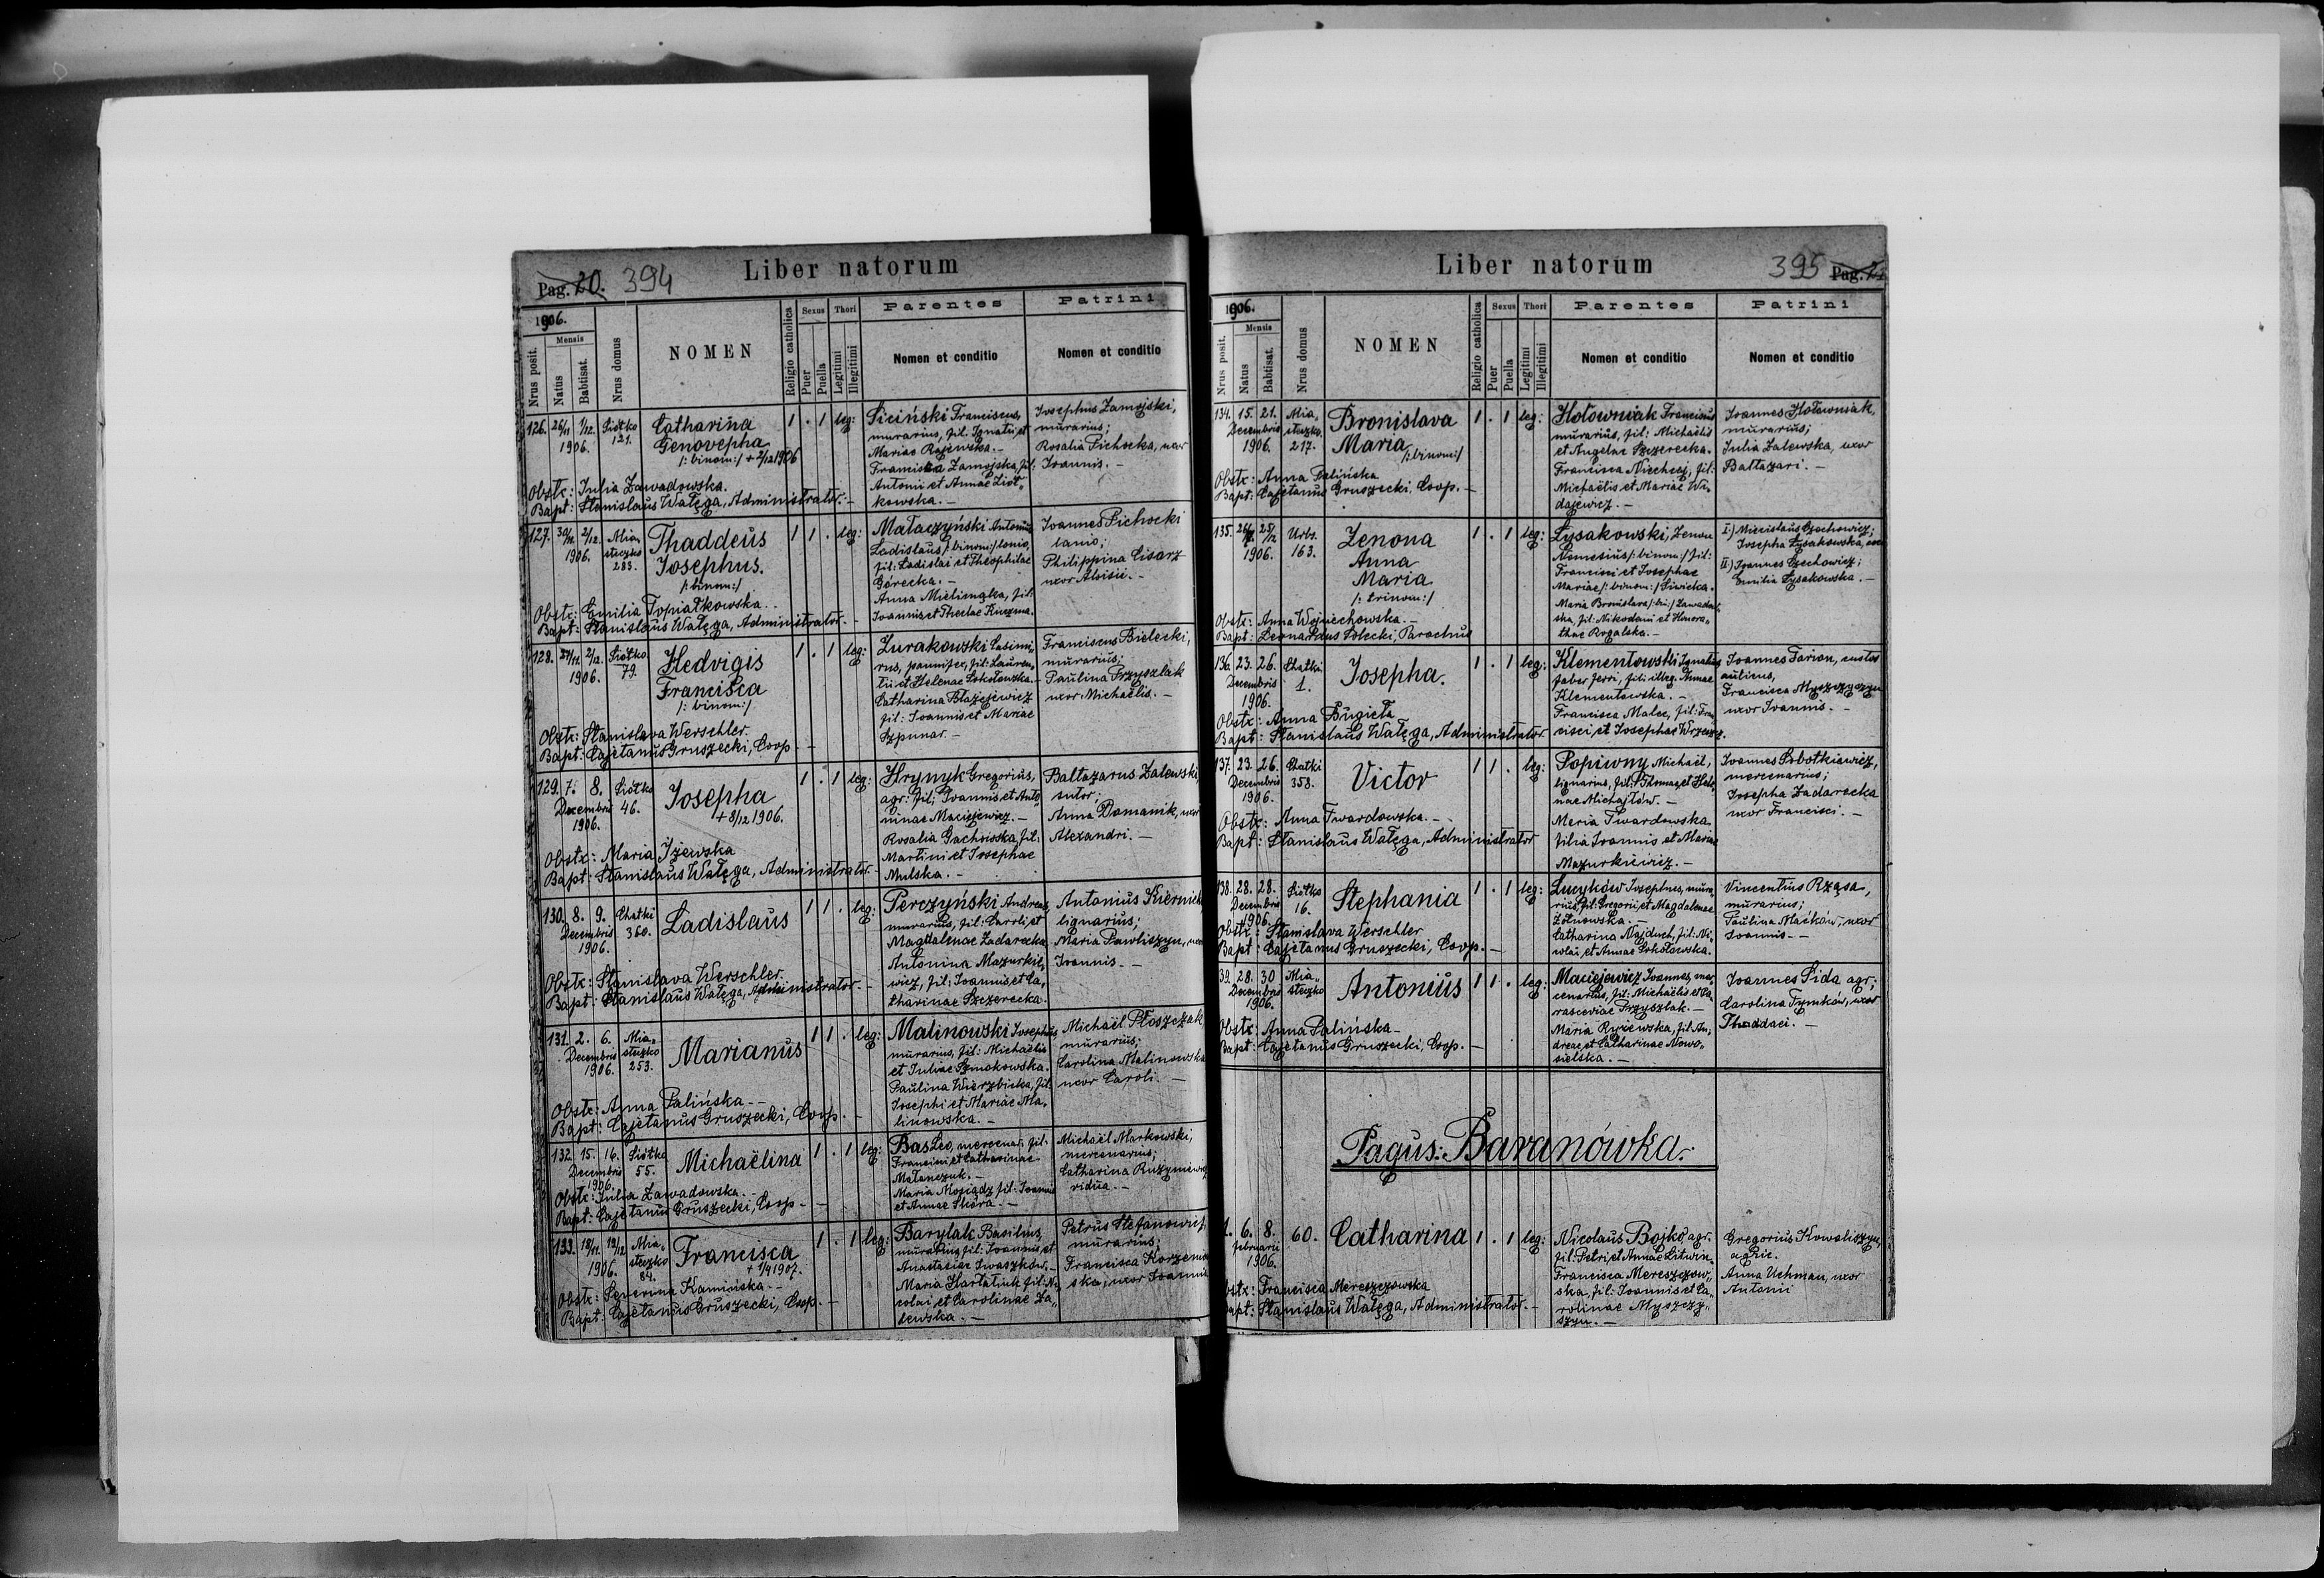 Pag. 20. 394
Liber natorum
1906.
Nrus posit.
Mensis
Natus
Babtisat.
Nrus domus
NOMEN
Religio catholica
Sexus
Puer
Puella
Thori
Legitimi
Illegitimi
Parentes
Nomen et conditio
Patrini
Nomen et conditio
126. 26/11 1/12. 1906.
Siółko
121.
Catharina
Genovepha
/: binom:/ + 2/12 1906
1 . 1 leg:
Siciński Franciscus,
murarius, fil: Ignatii et
Mariae Rajewska. -
Francisca Zamojska, fil:
Antonii et Annae Ziół-
kowska. -
Josephus Zamojski,
murarius;
Rosalia Cichocka, uxor
Joannis. -
Obstr: Julia Zawadowska.
Bapt: Stanislaus Wałęga, Administrator. -
127. 30/11 2/12. 1906.
Mia-
steczko
283.
Thaddeus
Josephus.
/: binom:/
1 1 . leg:
Małaczyński Antonius
Ladislaus /: binom:/ lanio,
fil: Ladislai et Theophilae
Górecka. -
Anna Mielimąka, fil:
Joannis et Theclae Kuczma.
Joannes Cichocki
lanio;
Philippina Cisarz
uxor Aloisii. -
Obstr: Emilia Topiałkowska.
Bapt: Stanislaus Wałęga, Administrator. -
128. 27/11. 2/12. 1906.
Siółko
79.
Hedvigis
Francisca
/: binom:/
1 . 1 leg:
Żurakowski Casimi-
rus, pannifex, fil: Lauren-
tii et Helenae Sokołowska. -
Catharina Błażejewicz
fil: Joannis et Mariae
Szpunar. -
Franciscus Bielecki,
murarius;
Paulina Przyszlak
uxor Michaëlis. -
Obstr: Stanislava Werschler.
Bapt: Cajetanus Gruszecki, Coop. -
129. 7. 8.
Decembris
1906.
Siółko
46.
Josepha
+ 8/12 1906.
1 . 1 leg:
Hrynyk Gregorius,
agr: fil: Joannis et Anto-
ninae Maciejewicz. -
Rosalia Gachowska, fil:
Martini et Josephae
Mulska. -
Baltazarus Zalewski,
sutor;
Anna Domanik, uxor
Alexandri. -
Obstr: Maria Iżewska
Bapt: Stanislaus Wałęga, Administrator. -
130. 8. 9.
Decembris
1906.
Chatki
360.
Ladislaus
1 1 . leg:
Perczyński Andreas
murarius, fil: Caroli et
Magdalenae Zadarecka
Antonina Mazurkie-
wicz, fil: Joannis et Ca-
tharinae Szczerecka.
Antonius Kiernicki
lignarius;
Maria Pawliszyn, uxor
Joannis. -
Obstr: Stanislava Werschler.
Bapt: Stanislaus Wałęga, Administrator. -
131. 2. 6.
Decembris
1906.
Mia-
steczko
253.
Marianus
1 1 . leg:
Malinowski Josephus,
murarius, fil: Michaëlis
et Juliae Szmakowska.
Paulina Wierzbicka, fil:
Josephi et Mariae Ma-
linowska. -
Michaël Płoszczak
murarius;
Carolina Malinowska
uxor Caroli. -
Obstr: Anna Palińska. -
Bapt: Cajetanus Gruszecki, Coop. -
132. 15. 16.
Decembris
1906.
Siółko
55.
Michaëlina
1 . 1 leg:
Bas Leo, mercenar, fil:
Francisci et Catharinae
Matanczuk. -
Maria Mosiądz fil: Joannis
et Annae Skóra. -
Michaël Markowski,
mercenarius;
Catharina Ruzyniewicz
vidua. -
Obstr: Julia Zawadowska. -
Bapt: Cajetanus Gruszecki, Coop. -
133. 18/11. 19/12 1906.
Mia-
steczko
84.
Francisca
+ 1/4 1907.
1 . 1 leg:
Barylak Basilius,
murarius, fil: Joannis et
Anastasiae Iwaszków. -
Maria Hartatiuk fil: Ni-
colai et Carolinae Za-
lewska. -
Petrus Stefanowicz,
murarius;
Francisca Korzeniow
ska, uxor Joannis
Obstr: Severina Kamińska. -
Bapt: Cajetanus Gruszecki, Coop. -
Liber natorum
395 Pag. 21
1906.
Nrus posit.
Mensis
Natus
Babtisat.
Nrus domus
NOMEN
Religio catholica
Sexus
Puer
Puella
Thori
Legitimi
Illegitimi
Parentes
Nomen et conditio
Patrini
Nomen et conditio
134. 15. 21.
Decembris
1906.
Mia-
steczko.
217.
Bronislava
Maria
/: binom:/
1 . 1 leg:
Hołowniak Franciscus
murarius, fil: Michaëlis
et Angelae Szczerecka.
Francisca Niechcaj, fil:
Michaëlis et Mariae Wi-
dajewicz. -
Joannes Hołowniak,
murarius;
Julia Zalewska, uxor
Baltazari. -
Obstr: Anna Palińska
Bapt: Cajetanus Gruszecki, Coop. -
135. 25/12 1906.
Urbs.
163.
Zenona
Anna
Maria
/: trinom:/
1 . 1 leg:
Łysakowski, Zenon
Nemesius /: binom:/ fil:
Francisci et Josephae
Mariae /: binom:/ Siwicka.
Maria Bronislava /: bin:/ Zawadow-
ska, fil: Nikodemi et Honora-
thae Rogalska. -
I.) Miecislaus Czechowicz;
Josepha Łysakowska,
II.) Joannes Czechowicz;
Emilia Łysakowska. -
Obstr: Anna Wojciechowska. -
Bapt: Leonardus Solecki, Parochus
136. 23. 26.
Decembris
1906.
Chatki
1.
Josepha.
1 . 1 leg:
Klementowski Ignatius
faber ferri, fil: illeg. Annae
Klementowska. -
Francisca Malec, fil: Fran-
cisci, et Josephae
Joannes Farion, custos
aulicus,
Francisca Myszczyszyn
uxor Joannis. -
Obstr: Anna Bugieła
Bapt: Stanislaus Wałęga, Administrator
137. 23. 26.
Decembris
1906.
Chatki
358.
Victor
1 1 . leg:
Popiwny Michaël,
lignarius, fil: Thomae et Hele-
nae Michajłów. -
Meria Twardowska
filia Joannis et Mariae
Mazurkiewicz. -
Joannes Sobotkiewicz,
mercenarius;
Josepha Zadarecka
uxor Francisci. -
Obstr: Anna Twardowska. -
Bapt: Stanislaus Wałęga, Administrator
138. 28. 28.
Decembris
1906.
Siółko
16.
Stephania
1 . 1 leg:
Lucyków Josephus, mura-
rius, fil: Gregorii et Magdalenae
Żółnowska. -
Catharina Najduch, fil: Ni-
colai et Annae Sokołowska.
Vincentius Rząsa,
murarius;
Paulina Maćków, uxor
Joannis. -
Obstr: Stanislava Werschler
Bapt: Cajetanus Gruszecki, Coop. -
39. 28. 30
Decembris
1906.
Mia-
steczko
Antonius
1 1 . leg:
Maciejewicz Joannes, mer-
cenarius, fil: Michaëlis et Pa-
rasceviae Przyszlak. -
Maria Ryżewska, fil: An-
dreae et Catharinae Nowo-
sielska. -
Joannes Sida agr.;
Carolina Tymków, uxor
Thaddaei. -
Obstr: Anna Palińska -
Bapt: Cajetanus Gruszecki, Coop. -
Pagus: Baranówka.
1. 6. 8.
februarii
1906.
60.
Catharina
1 . 1 leg:
Nicolaus Bojko, agr.
fil: Petri et Annae Litwin.
Francisca Mereszczow-
ska, fil: Joannis et Ca-
rolinae Myszczy-
szyn. -
Gregorius Kowaliszyn,
agric.
Anna Uchman, uxor
Antonii
Obstr: Francisca Mereszczowska
Bapt: Stanislaus Wałęga, Administrator. -